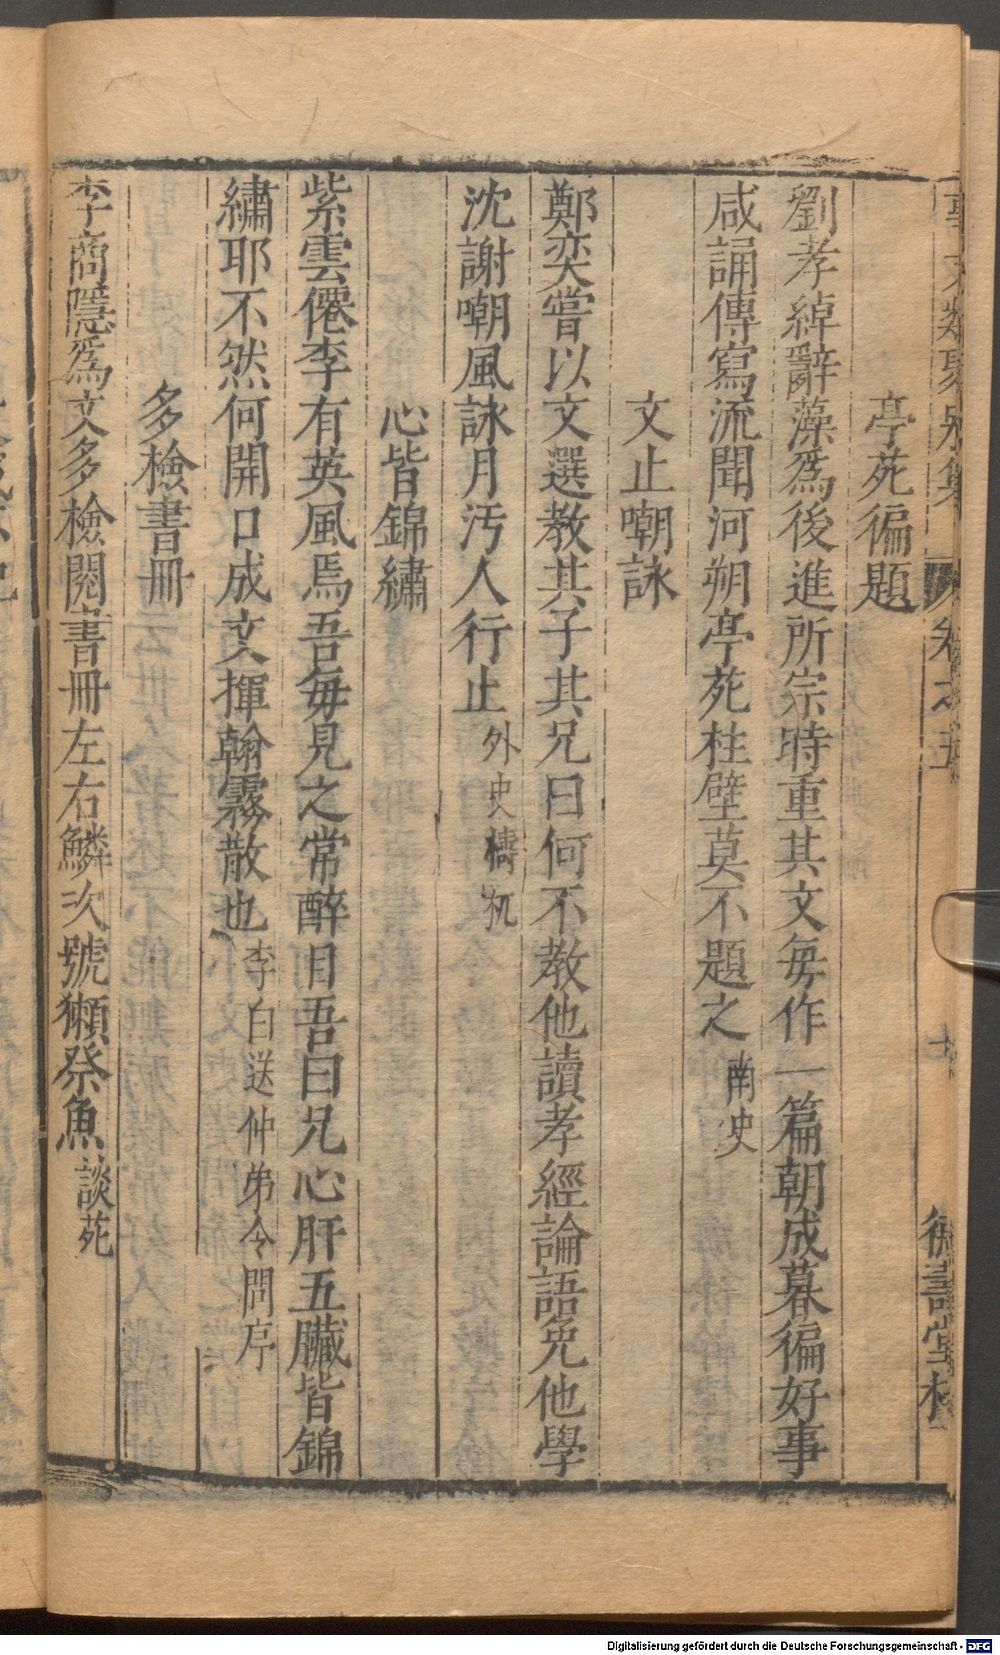 事文類聚別集 卷之五 德壽堂梓
亭苑徧題
劉孝綽辭藻爲後進所宗時重其文每作一篇朝成暮徧好事
咸誦傳寫流聞河朔亭苑柱壁莫不題之 南史
文止嘲詠
鄭奕嘗以文選教其子其兄曰何不教他讀孝經論語免他學
沈謝嘲風詠月汚人行止 外史檮杌
心皆錦繡
紫雲僊李有英風焉吾每見之常醉目吾曰兄心肝五臟皆錦
繡耶不然何開口成文揮翰霧散也 李白送仲弟令問序
多檢書冊
李商隱爲文多檢閱書冊左右鱗次號獺祭魚 談苑
Digitalisierung gefördert durch die Deutsche Forschungsgemeinschaft - DFG